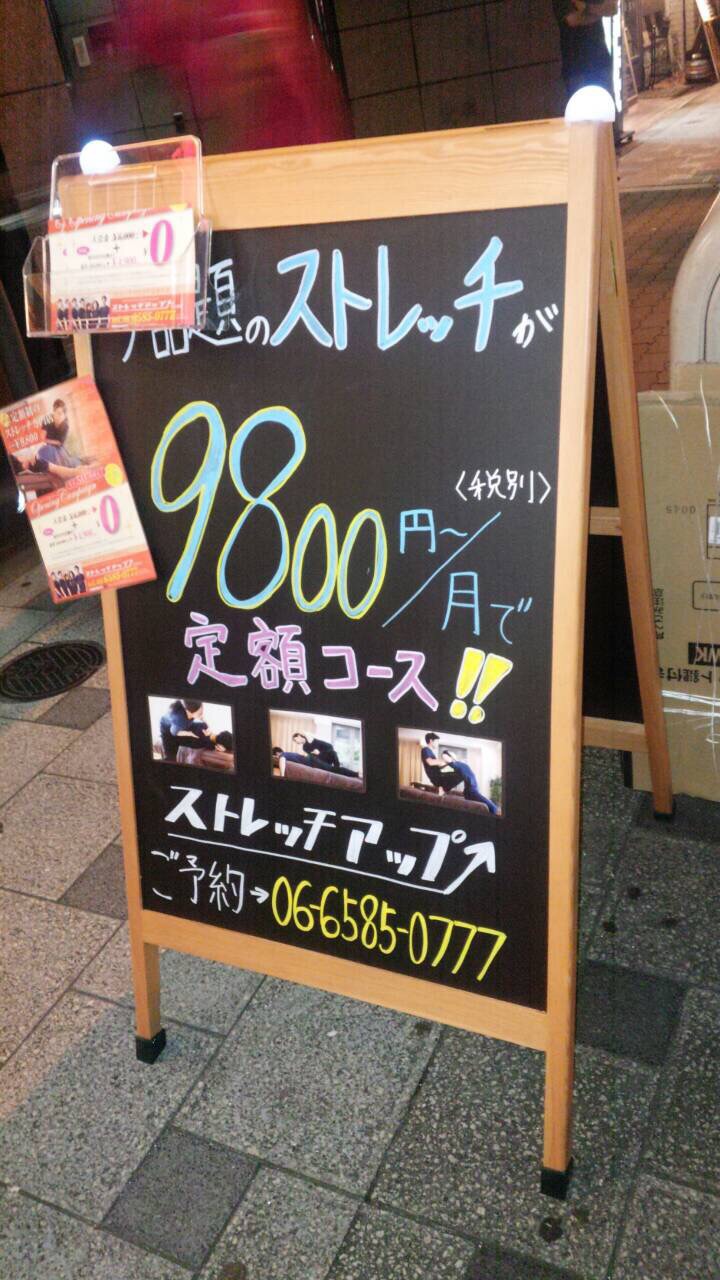 題のストレッチが
9800円〜/月で
〈税別〉
定額コース!!
ストレッチアップ↗
ご予約→06-6585-0777
0
ストレッチアップ
6585-0777
定額制の
ストレッチ専門店
¥9,800
Opening Campaign
0
ストレッチアップ
06-6585-0777